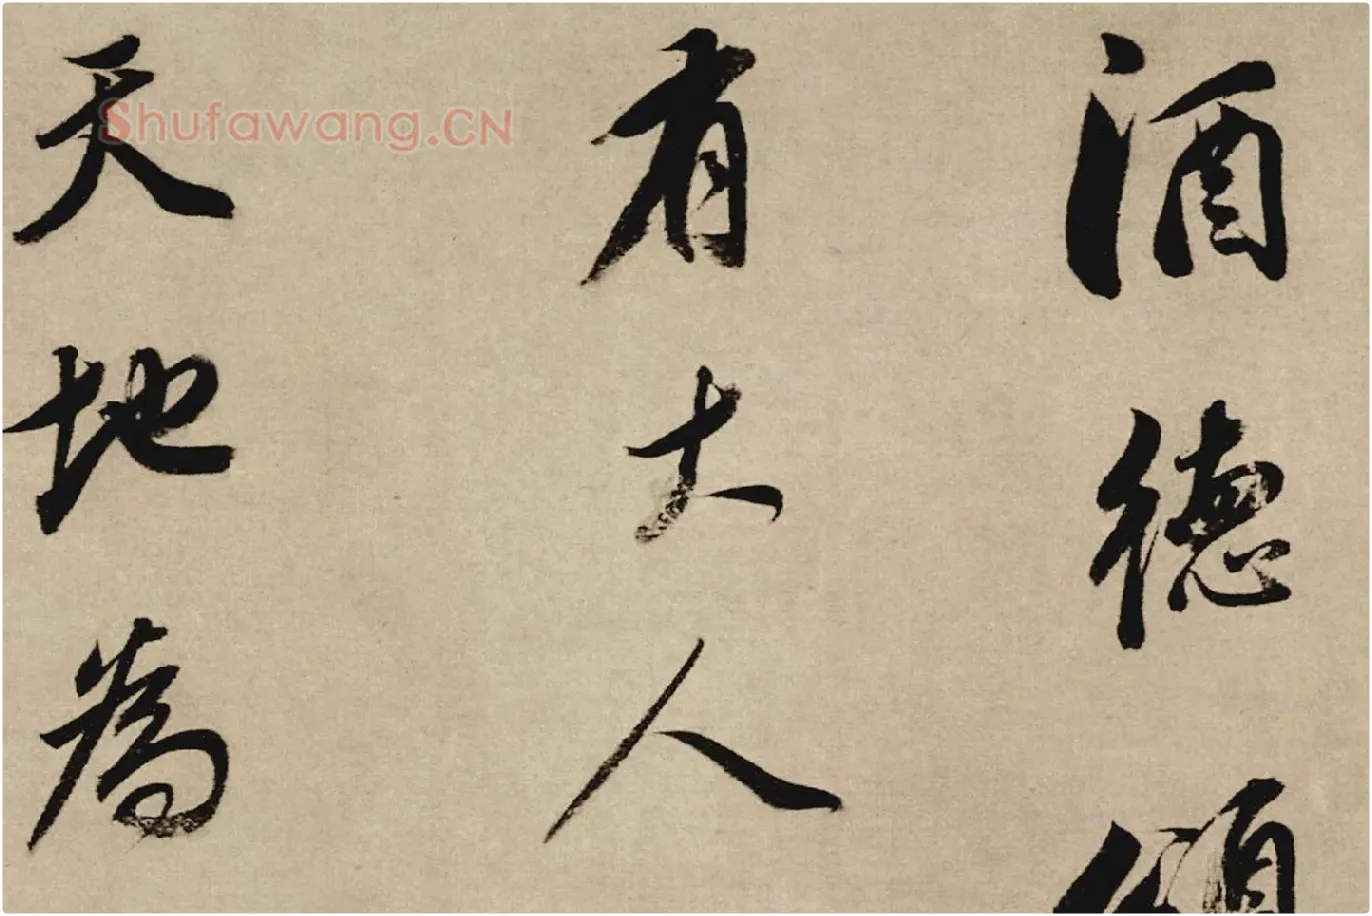 酒德頌
有大人
天地為
Shufawang.CN